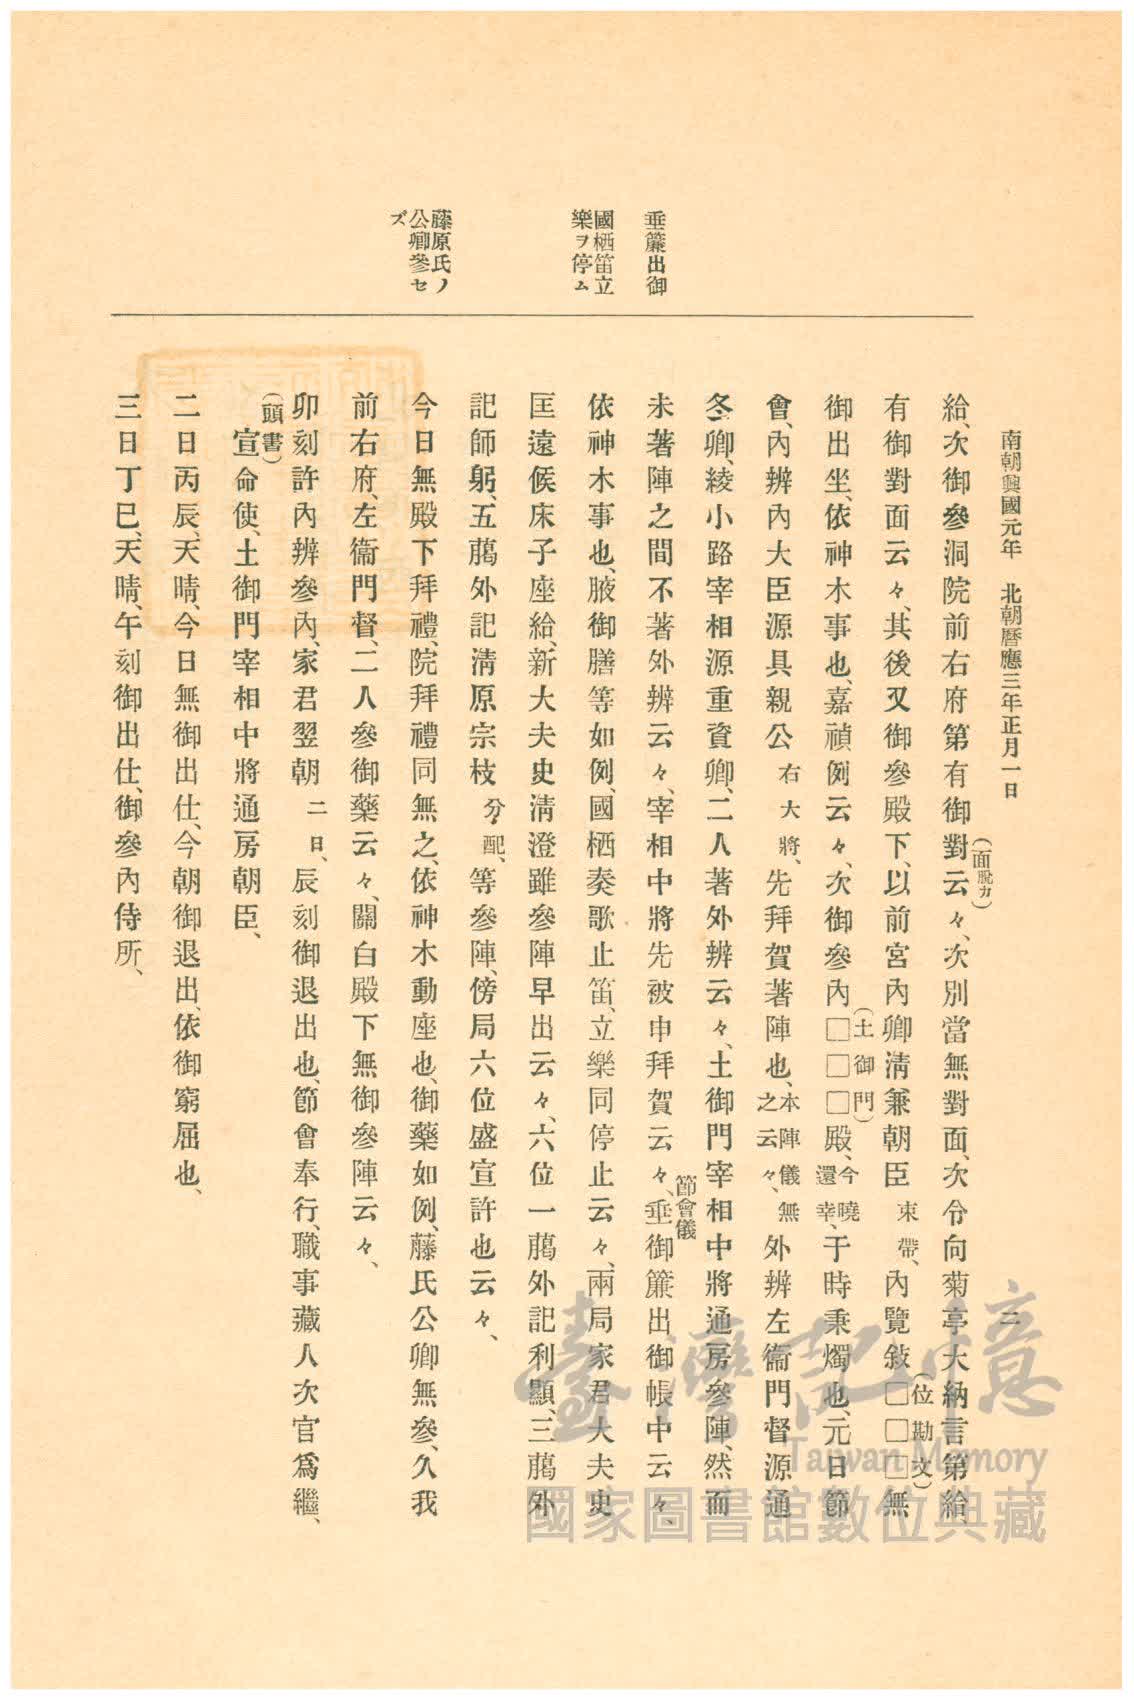 南朝興國元年　北朝曆應三年正月一日
二
垂簾出御
國栖笛立
樂ヲ停ム
藤原氏ノ
公卿參セ
ズ
給、次御參洞院前右府第有御對(面脫カ)云々、次別當無對面、次令向菊亭大納言第給、
有御對面云々、其後又御參殿下、以前宮內卿淸兼朝臣束帶、內覽敍□□□(位勘文)無
御出坐、依神木事也、嘉禎例云々、次御參內□□□(土御門)殿、今曉還幸、于時秉燭也、元日節
會、內辨內大臣源具親公右大將、先拜賀著陣也、本陣儀無之云々、外辨左衞門督源通
冬卿、綾小路宰相源重資卿、二人著外辨云々、土御門宰相中將通房參陣、然而
未著陣之間不著外辨云々、宰相中將先被申拜賀云々、節會儀垂御簾出御帳中云々、
依神木事也、腋御膳等如例、國栖奏歌止笛、立樂同停止云々、兩局家君大夫史
匡遠候床子座給、新大夫史淸澄雖參陣早出云々、六位一﨟外記利顯、三﨟外
記師躬、五﨟外記淸原宗枝分配、等參陣、傍局六位盛宣許也云々、
今日無殿下拜禮、院拜禮同無之、依神木動座也、御藥如例、藤氏公卿無參、久我
前右府、左衞門督、二人參御藥云々、關白殿下無御參陣云々、
卯刻許內辨參內、家君翌朝二日、辰刻御退出也、節會奉行、職事藏人次官爲繼、
(頭書)
宣命使、土御門宰相中將通房朝臣、
二日丙辰、天晴、今日無御出仕、今朝御退出、依御窮屈也、
三日丁巳、天晴、午刻御出仕、御參內侍所、
臺灣記憶
Taiwan Memory
國家圖書館數位典藏